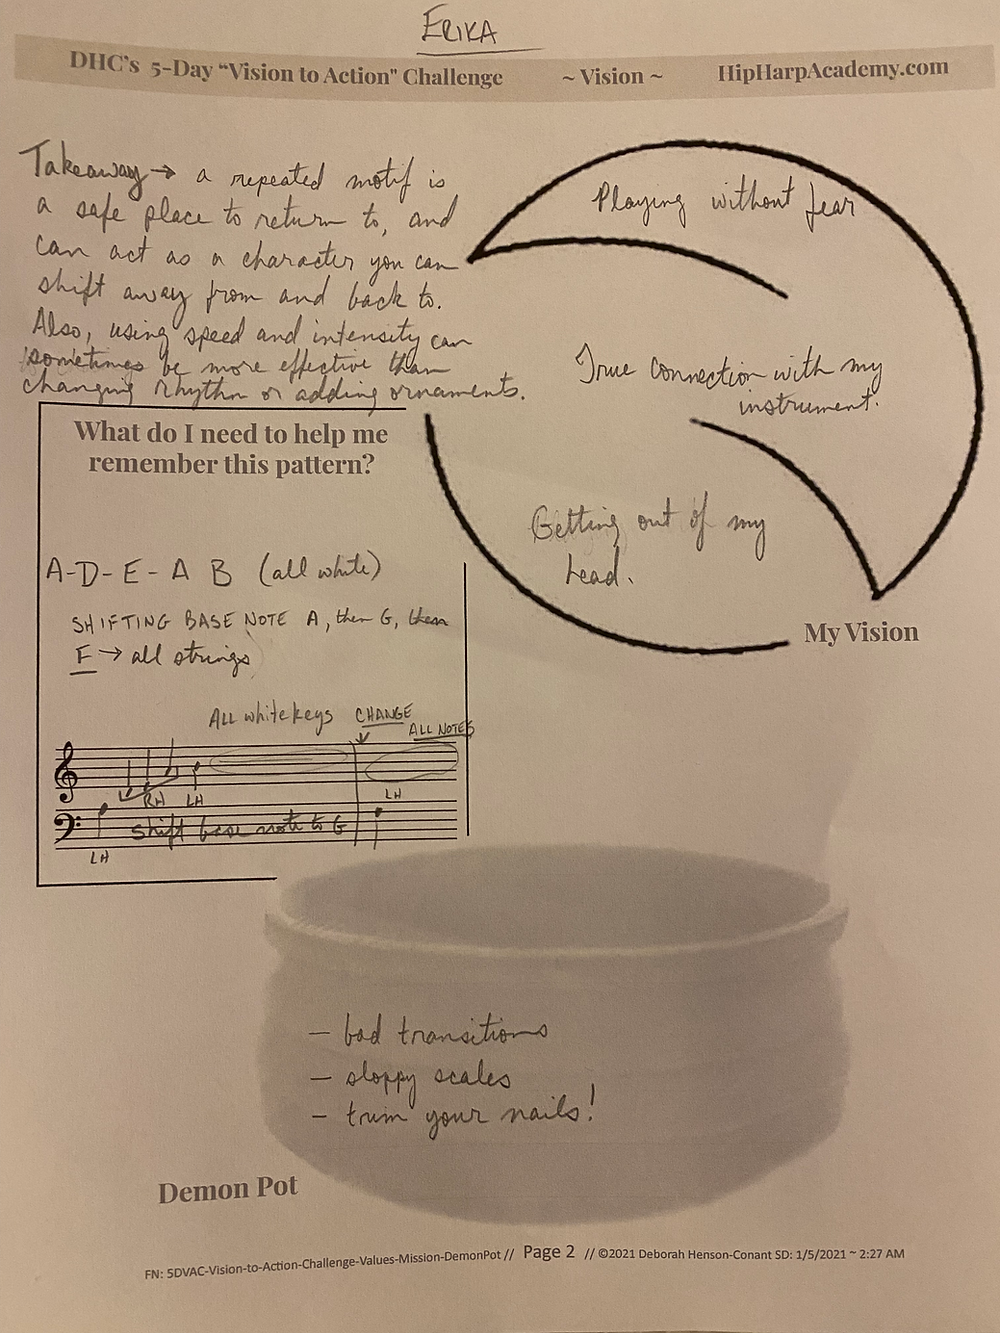 ERIKA
DHC's 5-Day “Vision to Action" Challenge ~ Vision ~ HipHarpAcademy.com
Takeaway → a repeated motif is
a safe place to return to, and
can act as a character you can
shift away from and back to.
Also, using speed and intensity can
sometimes be more effective than
changing rhythm or adding ornaments.
Playing without fear
True connection with my
instrument.
Getting out of my
head.
My Vision
What do I need to help me
remember this pattern?
A-D-E-A B (all white)
SHIFTING BASE NOTE A, then G, then
F → all strings
ALL white keys CHANGE
ALL NOTES
RH LH LH
shift base note to G
LH
- bad transitions
- sloppy scales
- trim your nails!
Demon Pot
FN: 5DVAC-Vision-to-Action-Challenge-Values-Mission-DemonPot // Page 2 // ©2021 Deborah Henson-Conant SD: 1/5/2021 ~ 2:27 AM